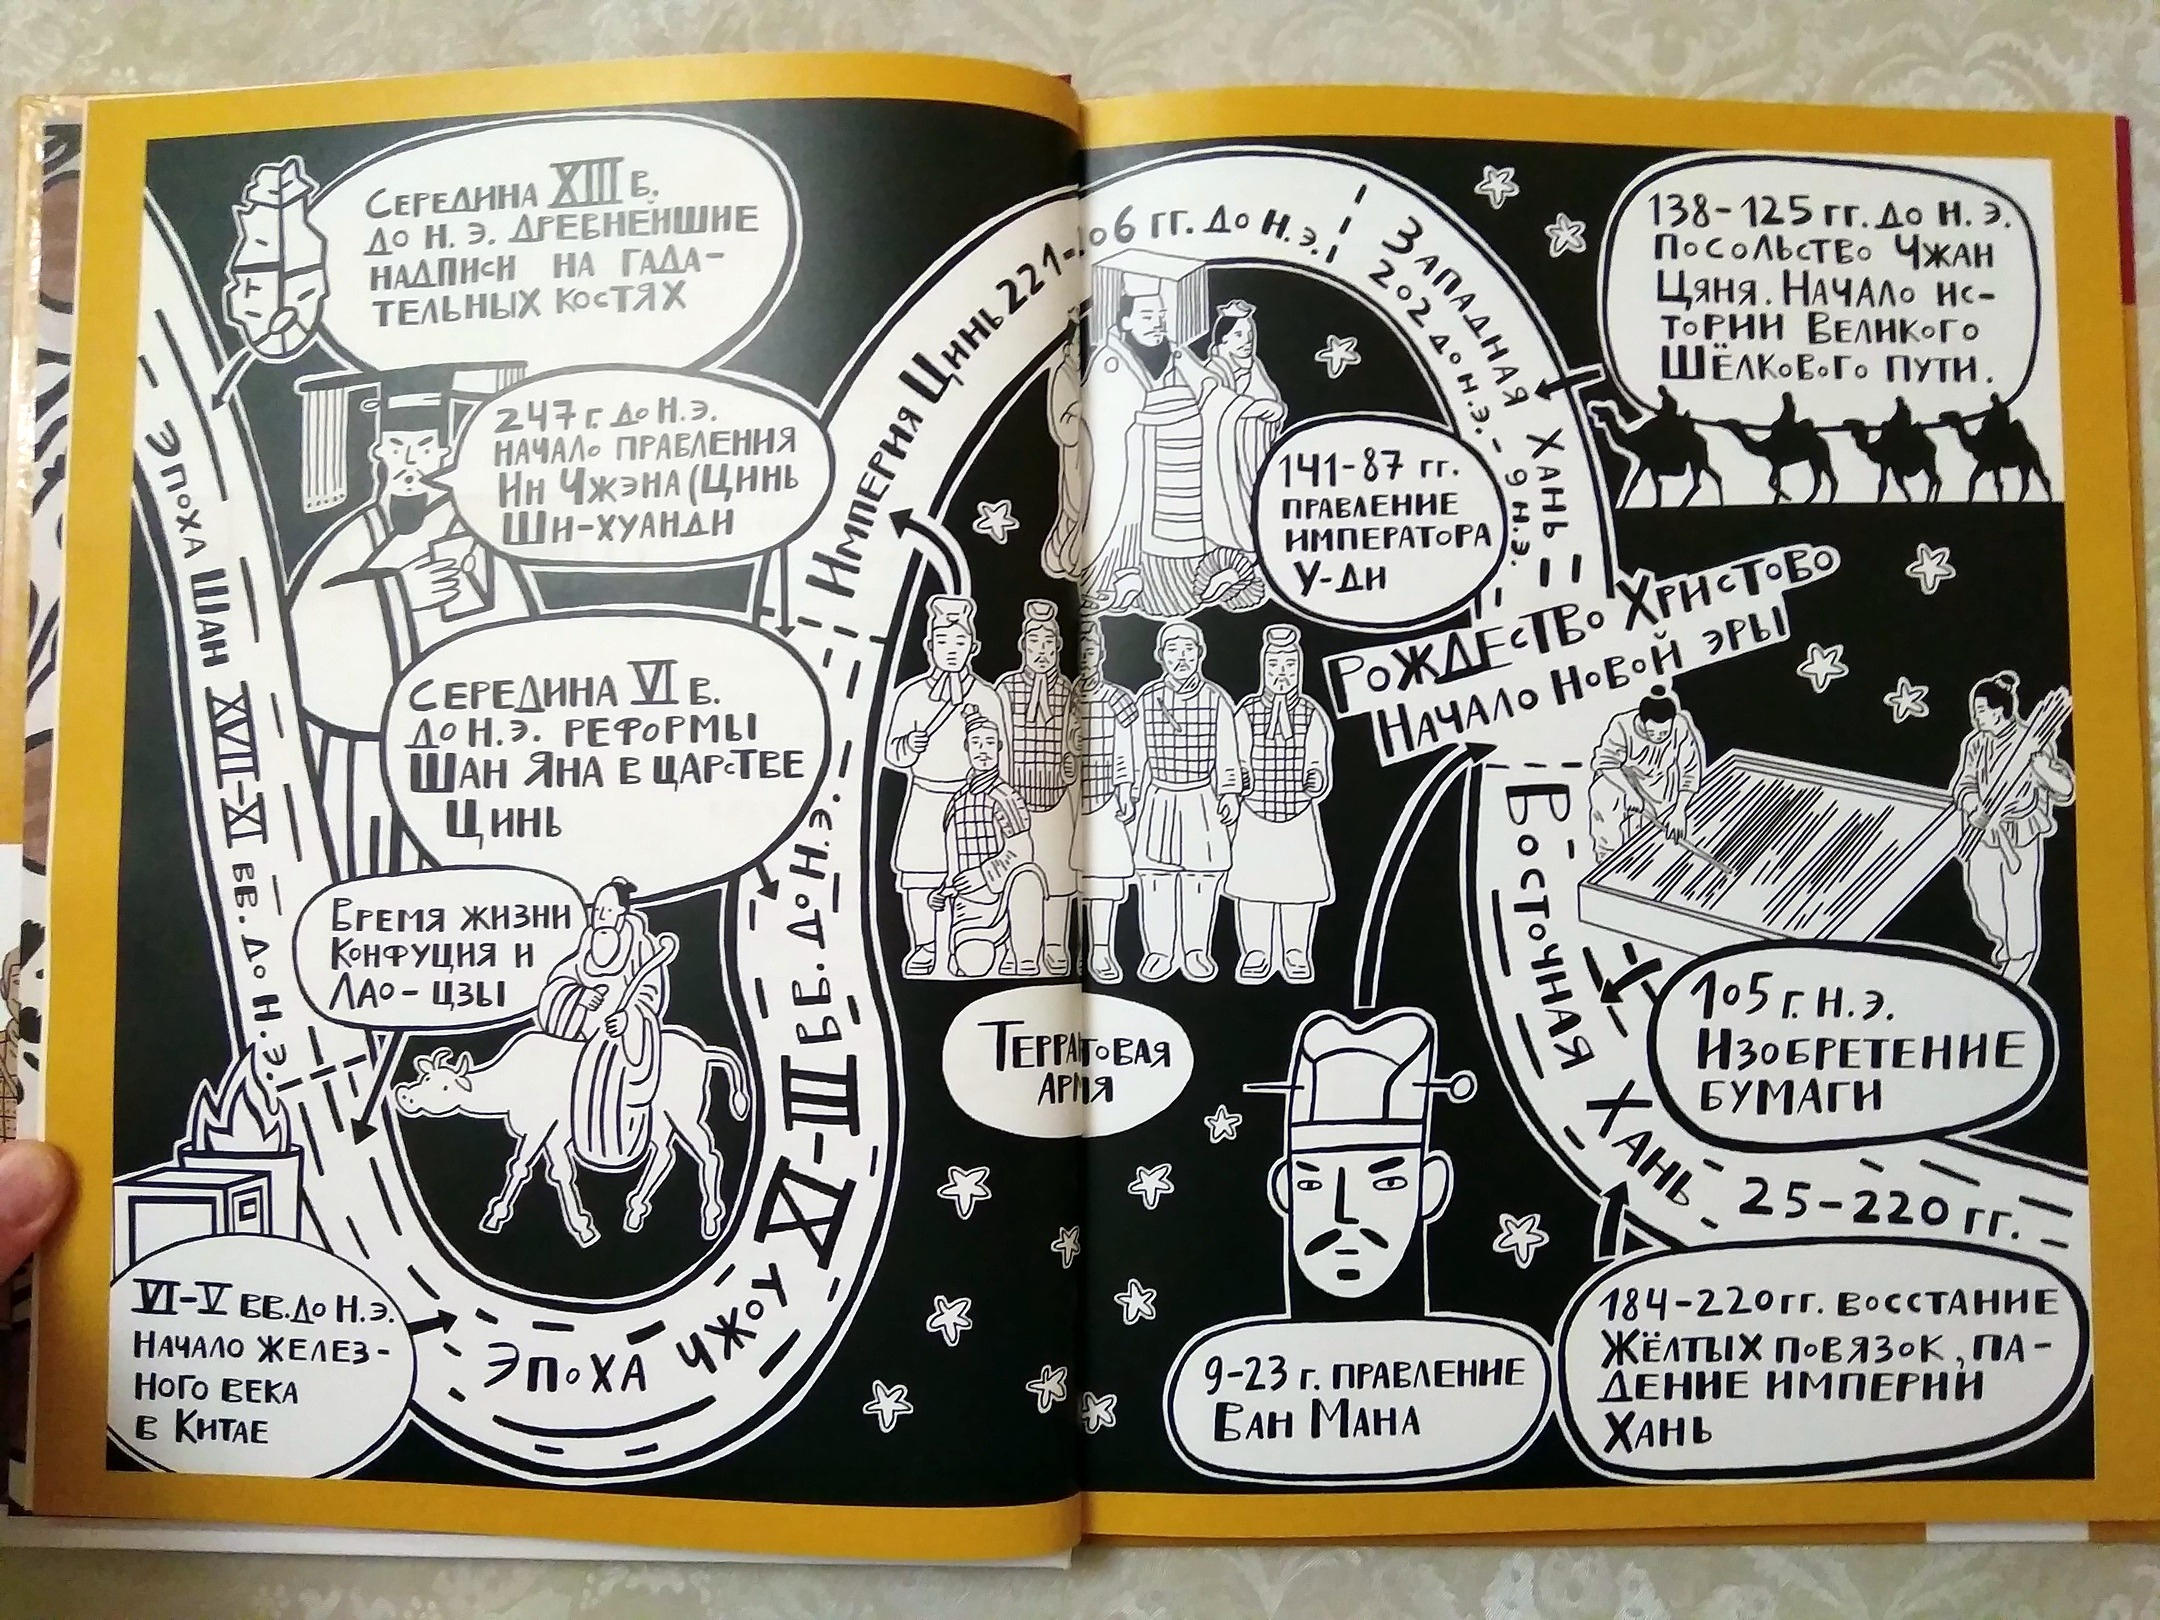 Середина XIII в.
до н. э. древнейшие
надписи на гада-
тельных костях
Эпоха Шан XVII-XI вв. до н.э.
247 г. до н.э.
начало правления
Ин Чжэна (Цинь
Ши-хуанди
Середина VI в.
до н.э. реформы
Шан Яна в царстве
Цинь
Время жизни
Конфуция и
Лао-цзы
VI-V вв. до н.э.
Начало желез-
ного века
в Китае
Эпоха Чжоу XI-III вв. до н.э.
Империя Цинь 221-206 гг. до н.э.
Терракотовая
армия
Западная Хань
202 до н.э. - 9 н.э.
138-125 гг. до н. э.
Посольство Чжан
Цяня. Начало ис-
тории Великого
Шёлкового пути.
141-87 гг.
правление
императора
У-ди
Рождество Христово
Начало новой эры
9-23 г. правление
Ван Мана
Восточная Хань 25-220 гг.
105 г. н.э.
Изобретение
бумаги
184-220 гг. восстание
Жёлтых повязок, па-
дение империи
Хань